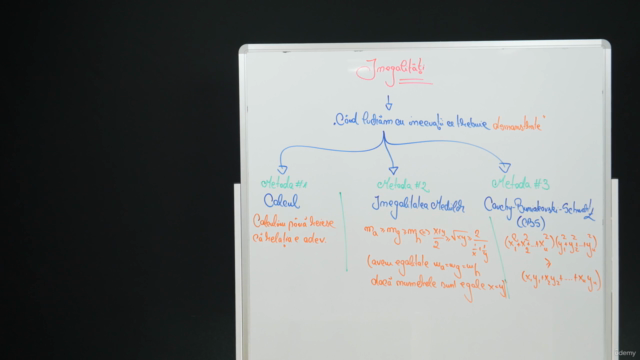 Inegalități
"Când lucrăm cu inecuații ce trebuie demonstrate"
Metoda #1
Calcul
Calculăm până trece
că relația e adev.
Metoda #2
Inegalitatea Mediilor
ma ≥ mg ≥ mh => x+y/2 ≥ √xy ≥ 2/(1/x+1/y)
(avem egalitate ma=mg=mh
dacă numerele sunt egale x=y)
Metoda #3
Cauchy-Buniakovski-Schwarz
(CBS)
(x₁²+x₂²+...+xₙ²)(y₁²+y₂²+...+yₙ²)
≥
(x₁y₁+x₂y₂+...+xₙyₙ)²
udemy